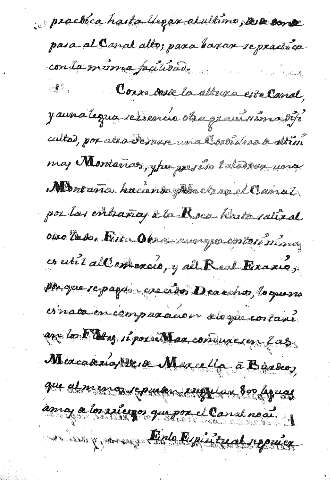 practica hasta llegar al ultimo, desde donde
pasa al Canal alto; para baxar se practica
con la misma facilidad.
Corre desde la altura este Canal,
y a una legua se venció otra gravisima difi
cultad, por atravesar una de altisi
mas Montañas, y fue preciso taladrar una
Montaña haciendo el Canal
por las entrañas de la Roca hasta salir al
otro lado. Esta Obra aunque costosisima,
es util al Comercio, y al Real Erario,
por que se pagan crecidos Derechos, lo que no
es nada en comparacion de lo que costari
an los si por Mar conduxesen las
Mercaderias desde Marcella à Burdeos,
que al menos se pueden regular 800 leguas
amas de los riesgos que por el Canal no ai.
En lo Espiritual